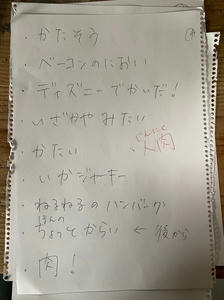 ・かたそう
・ベーコンのにおい
・ディズニーでかいだ!
・いざかやみたい
・かたい
・じんにく
人肉
・いかジャーキー
・ねるねるのハンバーグ
ほんの
・ちょっとからい ← 後から
・肉!